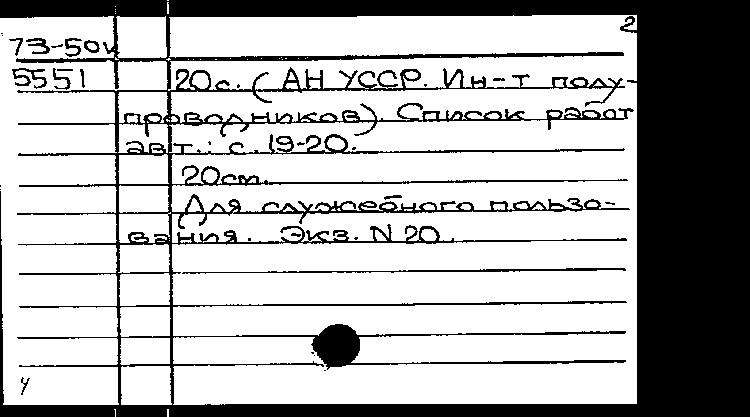 2
73-50к
5551 20с. (АН УССР. Ин-т полу-
проводников). Список работ
авт.: с. 19-20.
20см.
Для служебного пользо-
вания. Экз. N 20.
У